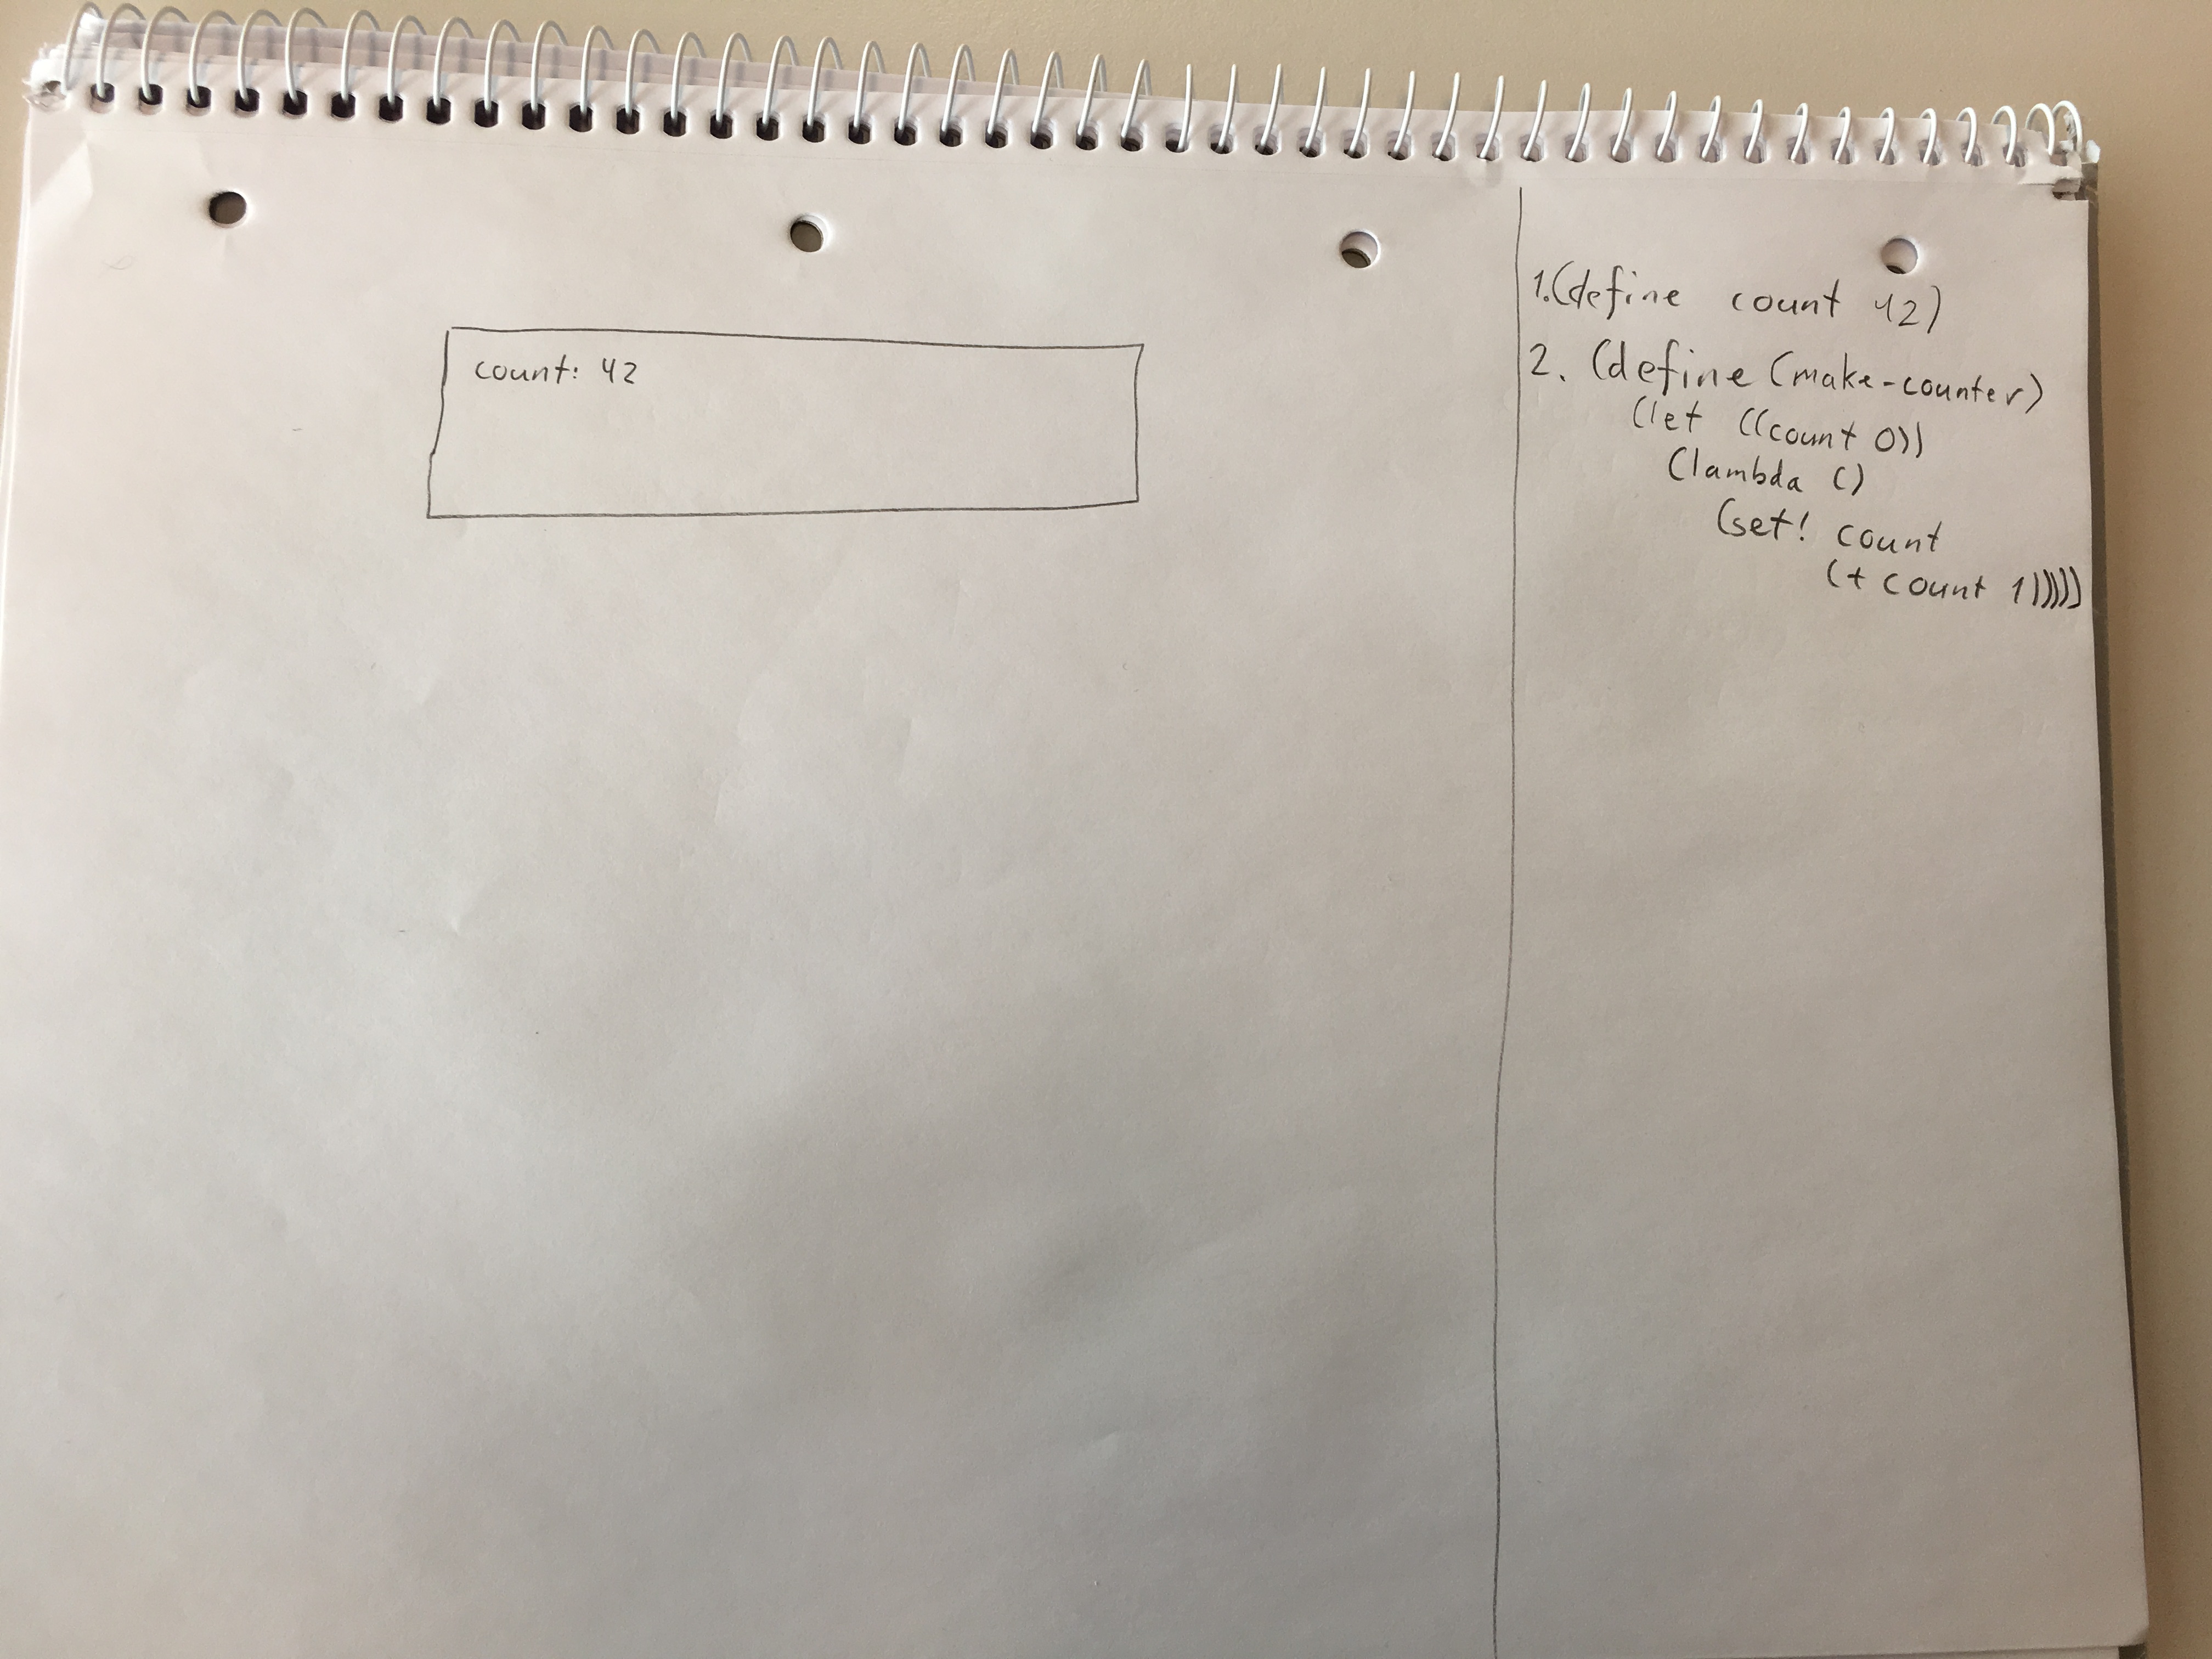 count: 42
1.(define count 42)
2. (define (make-counter)
(let ((count 0))
(lambda ()
(set! count
(+ count 1)))))